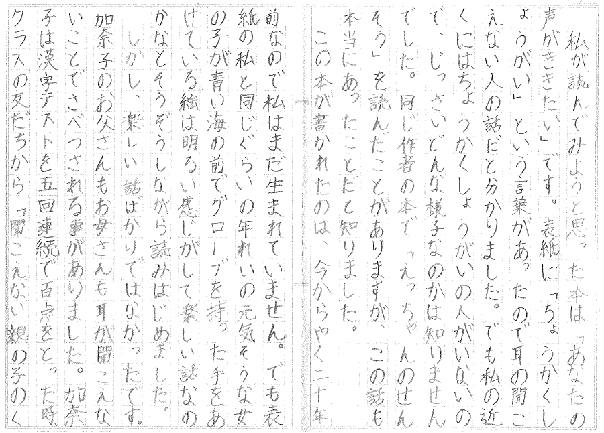 私が読んでみようと思った本は「あなたの
声がききたい」です。表紙に「ちょうかくし
ょうがい」という言葉があったので耳の聞こ
えない人の話だと分かりました。でも私の近
くにはちょうかくしょうがいの人がいないの
で、じっさいどんな様子なのかは知りません
でした。同じ作者の本で「えっちゃんのせん
そう」を読んだことがありますが、この話も
本当にあったことだと知りました。
この本が書かれたのは、今からやく二十年
前なので私はまだ生まれていません。でも表
紙の私と同じぐらいの年れいの元気そうな女
の子が青い海の前でグローブを持った手をあ
げている絵は明るい感じがして楽しい話なの
かなとそうぞうしながら読みはじめました。
しかし、楽しい話ばかりではなかったです。
加奈子のお父さんもお母さんも耳が聞こえな
いことでさべつされる事がありました。加奈
子は漢字テストを五回連続で百点をとった時
クラスの友だちから「聞こえない親の子のく